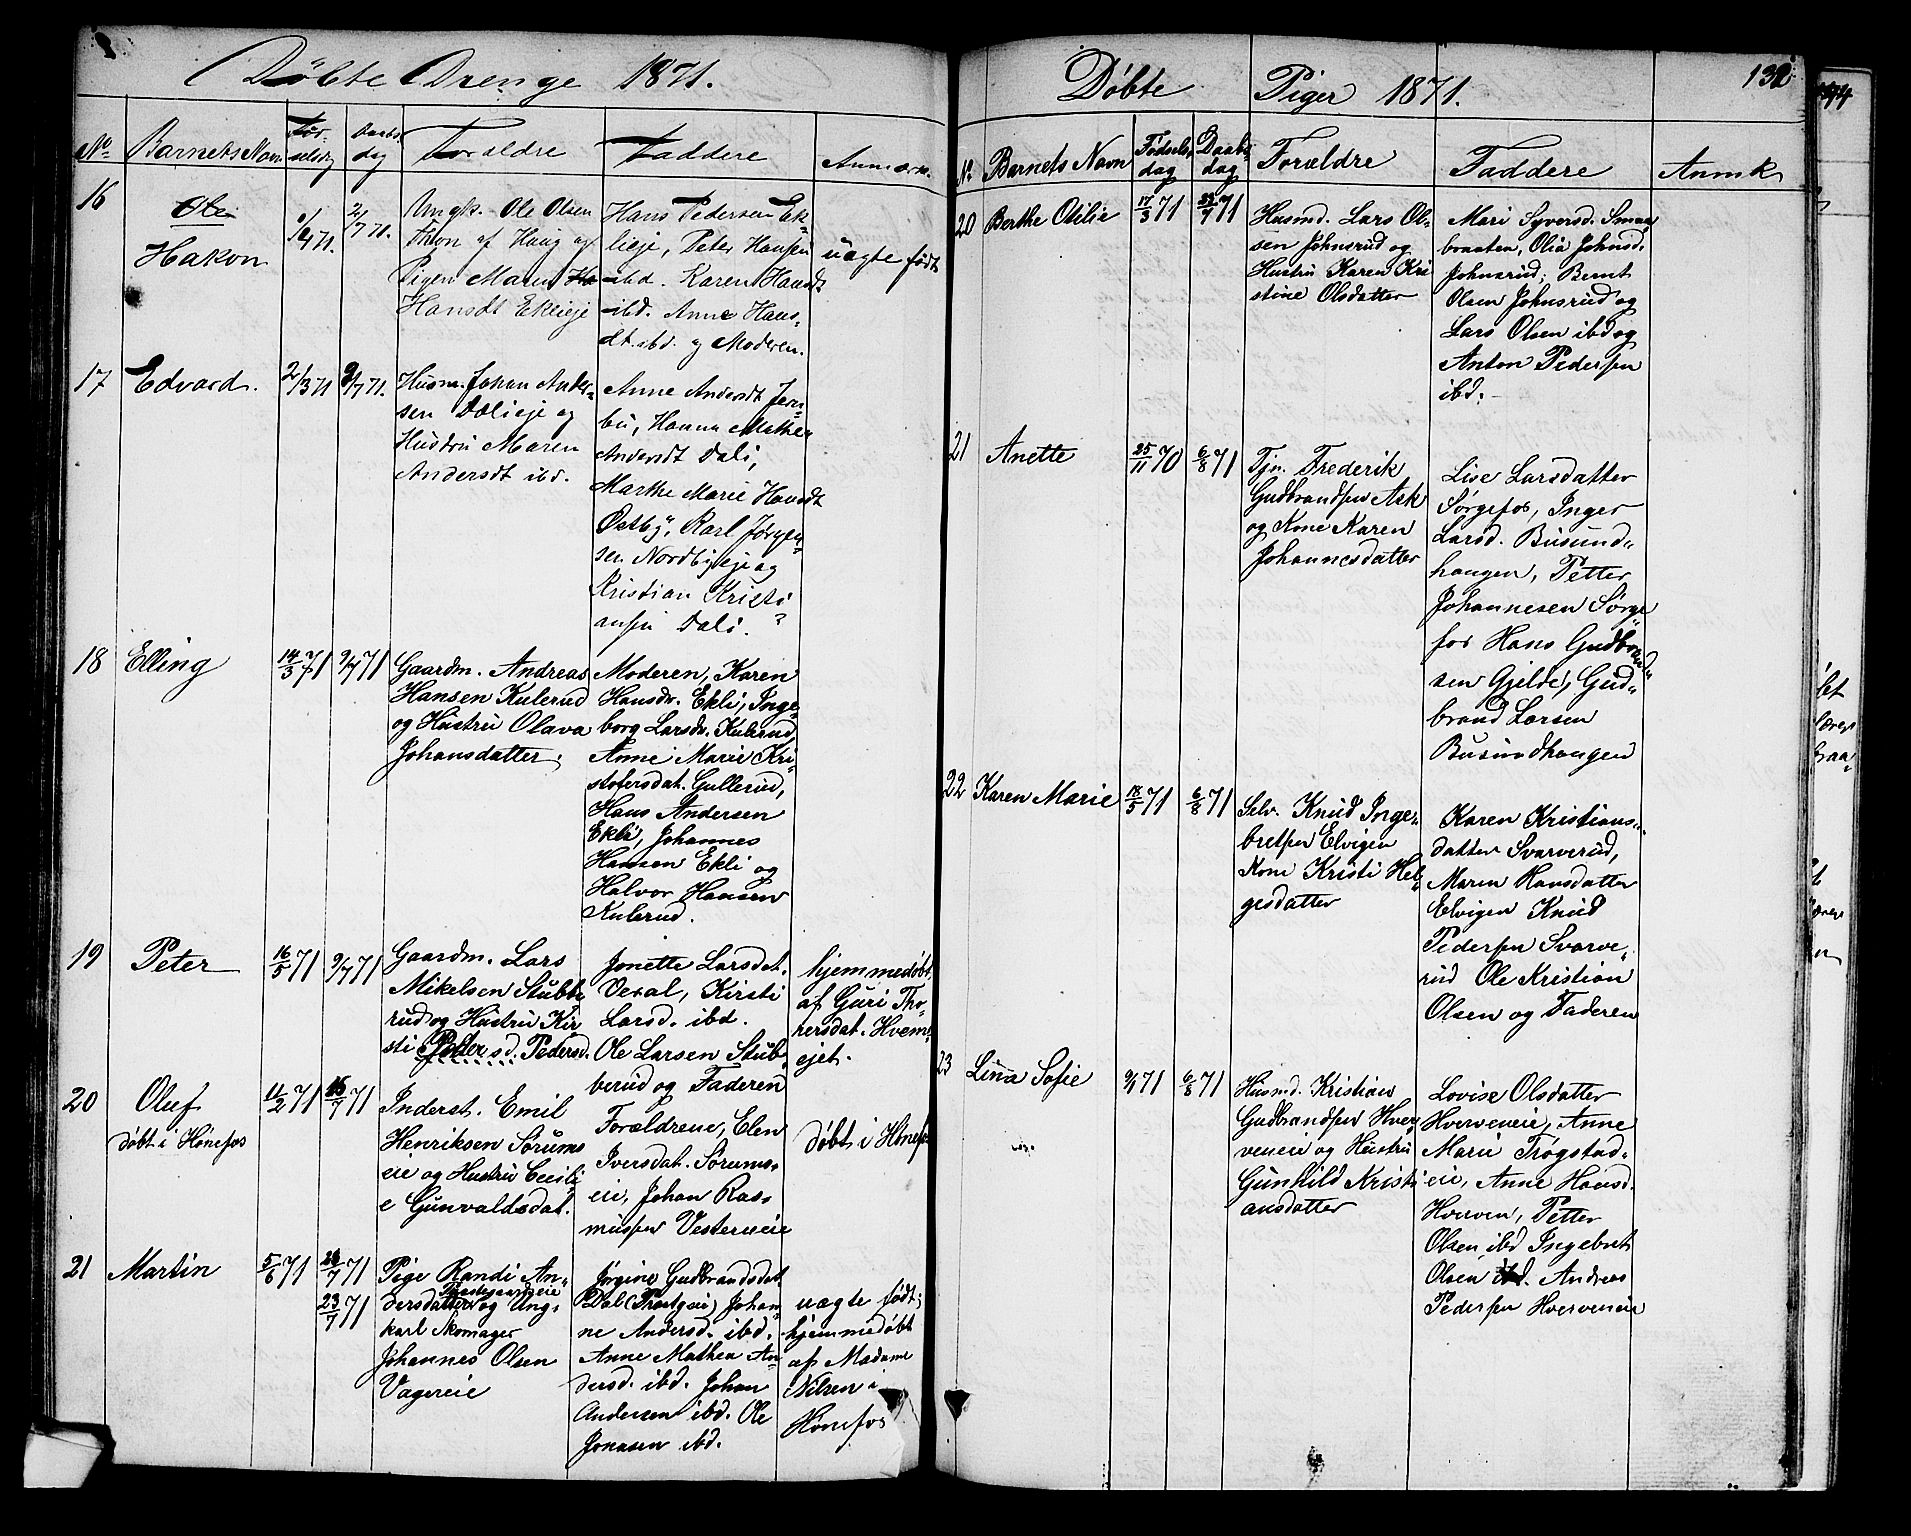 Döbte Drenge 1871.
No. Barnets Navn Fødselsdag Daabsdag Forældre Faddere Anmærk.
16
Ole
Hakon
2/7 71.
Ungk. Ole Olsen
Thon af Haug og
Pigen Maren Ha
Hansdt Eklieje
Hans Pedersen Ek-
lieje, Peter Hansen
ibd. Karen Hansdt
ibd. Anne Hans-
dt. ibd. og Moderen.
uægte født
17
Edvard.
2/3 71
9/7 71.
Husm. Johan Ander-
sen Dalieje og
Hustru Maren
Andersdt ibd.
Anne Andersdt Jern-
bu, Hanna Mathea
Andersdt Dali,
Marthe Marie Hansdt
Østby, Karl Jörgen-
sen Nordbyeje og
Kristian Kristi
ansen Dali. ?
18
Elling
14/3 71
9/7 71
Gaardm. Andreas
Hansen Kulerud
og Hustru Olava
Johansdatter.
Moderen, Karen
Hansdr. Ekli, Inge-
borg Larsdr. Kulerud,
Anne Marie Kri-
stofersdat. Gullerud,
Hans Andersen
Ekli, Johannes
Hansen Ekli og
Halvor Hansen
Kulerud.
19
Peter
16/5 71
9/7 71
Gaardm. Lars
Mikelsen Stubbe
rud og Hustru Kir
sti Petter sd. Pedersd.
Jonette Larsdat.
Veral, Kirsti
Larsd. ibd.
Ole Larsen Stub-
berud og Faderen
hjemmedøbt
af Guri Tho-
rersdat. Hvem-
ejet.
20
Oluf
döbt i Hönefos
11/2 71
16/7 71
Inderst. Emil
Henriksen Sörums
eie og Hustru Cecili
e Gunvaldsdat.
Forældrene, Elen
Iversdat. Sörums-
eie, Johan Ras-
musen Vesterneie
döbt i Hönefos
21
Martin
5/6 71
23/7 71
Pige Randi An-
dersdatter og Ung-
karl Skomager
Johannes Olsen
Vagereie
Jörgine Gudbrandsdat
Dal Johan-
ne Andersd. ibd.
Anne Mathea An-
dersd. ibd. Johan
Andersen ibd. Ole
Jonasen ibd.
uægte født;
hjemmedöbt
af Madame
Nilsen i
Hönefos
Döbte Piger 1871.
132
No. Barnets Navn Födsels dag Daabs dag Forældre Faddere Anmk
20
Berthe Otilie
17/3 71
Husmd. Lars Ol-
sen Johnsrud og
Hustru Karen Kri
stine Olsdatter
Mari Syversd. Smaa-
braaten, Olia Johnsd.
Johnsrud; Bernt
Olsen Johnsrud og
Lars Olsen ibd og
Anton Pedersen
ibd.
21
Anette
25/11 70
6/8 71
Tjn. Frederik
Gudbrandsen Ask
og Kone Karen
Johannesdatter
Lise Larsdatter
Sörgefos, Inger
Larsd. Busund-
haugen, Petter
Johannesen Sörge
fos Hans Gudbrand-
sen Gjelde, Gud-
brand Larsen
Busundhaugen
22
Karen Marie
18/5 71
6/8 71
Selv. Knud Inge-
bretsen Elvigen
Kone Kristi Hel-
gesdatter
Karen Kristians-
datter Svarverud,
Maren Hansdatter
Elvigen Knud
Pedersen Svarve-
rud Ole Kristian
Olsen og Faderen
23
Lina Sofie
9/1 71
6/8 71
Husmd. Kristian
Gudbrandsen Hver-
veneie og Hustru
Gunhild Kristi
ansdatter
Lovise Olsdatter
Hverveneie, Anne
Marie Trögstad-
eie, Anne Hansd.
Hverven, Petter
Olsen ibd Ingebret
Olsen ibd. Andreas
Pedersen Hverveneie